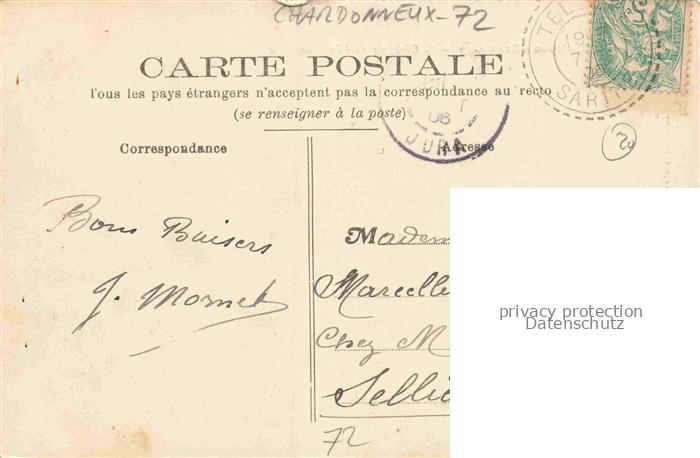 CHARDONNEUX-72
CARTE POSTALE
Tous les pays étrangers n'acceptent pas la correspondance au recto
(se renseigner à la poste)
TEL
SARTHE
06
JURA
20
Correspondance
Adresse
Bons Baisers
J. Mornet
Madem
Marcelle
Chez M
Sellie
72
privacy protection
Datenschutz